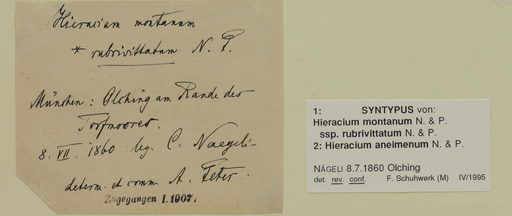 Hieracium montanum
* rubrivittatum N. P.
München: Olching am Rande des
Torfmoores.
8. VII. 1860 leg. C. Naegeli-
determ. et comm. A. Peter.
Zugegangen I. 1907.
1: SYNTYPUS von:
Hieracium montanum N. & P.
ssp. rubrivittatum N. & P.
2: Hieracium aneimenum N. & P.
NÄGELI 8.7.1860 Olching
det. rev. conf. F. Schuhwerk (M) IV/1995